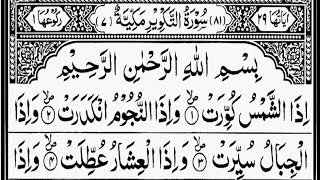 اٰیَاتُهَا ۲۹ (۸۱) سُوْرَةُ التَّكْوِيْرِ مَكِّيَّةٌ (۷) رُكُوْعُهَا ۱
بِسْمِ اللّٰهِ الرَّحْمٰنِ الرَّحِيْمِ
اِذَا الشَّمْسُ كُوِّرَتْ ۙ۱ وَاِذَا النُّجُوْمُ انْكَدَرَتْ ۙ۲ وَاِذَا
الْجِبَالُ سُيِّرَتْ ۙ۳ وَاِذَا الْعِشَارُ عُطِّلَتْ ۙ۴ وَاِذَا